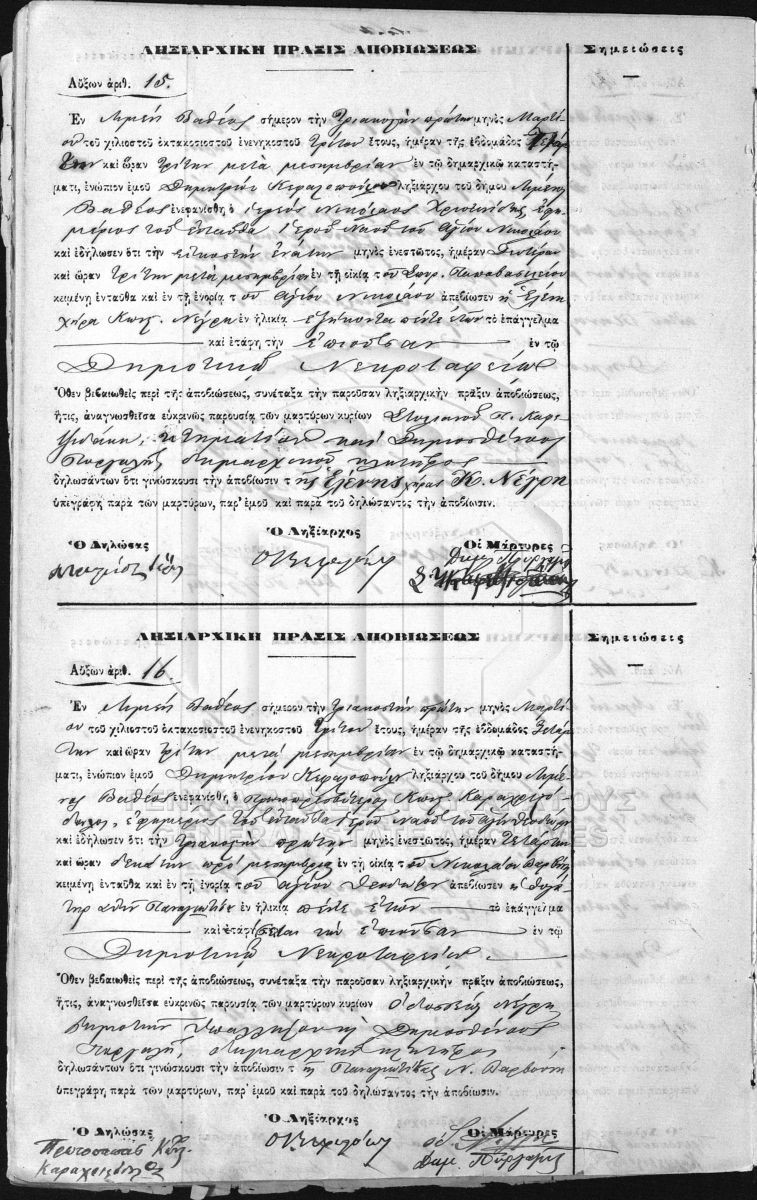 ΛΗΞΙΑΡΧΙΚΗ ΠΡΑΞΙΣ ΑΠΟΒΙΩΣΕΩΣ
Σημειώσεις
Αὔξων ἀριθ. 15.
Ἐν Λιμένι Βαθέος σήμερον τὴν τριακοστὴν πρώτην μηνὸς Μαρτί-
ου τοῦ χιλιοστοῦ ὀκτακοσιοστοῦ ἐνενηκοστοῦ τρίτου ἔτους, ἡμέραν τῆς ἑβδομάδος Τετάρ
την καὶ ὥραν τρίτην μετὰ μεσημβρίαν ἐν τῷ δημαρχικῷ καταστή-
ματι, ἐνώπιον ἐμοῦ Δημητρίου Κεφαλοπούλου ληξιάρχου τοῦ δήμου Λιμένος
Βαθέος ἐνεφανίσθη ὁ ἱερεὺς Νικόλαος ἐφη-
μέριος τοῦ ἐνταῦθα ἱεροῦ Ναοῦ τοῦ Ἁγίου Νικολάου
καὶ ἐδήλωσεν ὅτι τὴν εἰκοστὴν ἐνάτην μηνὸς ἐνεστῶτος, ἡμέραν Δευτέραν
καὶ ὥραν τρίτην μετὰ μεσημβρίαν ἐν τῇ οἰκίᾳ τοῦ Παπαβασιλείου
κειμένῃ ἐνταῦθα καὶ ἐν τῇ ἐνορίᾳ τοῦ ἁγίου Νικολάου ἀπεβίωσεν ἡ Ἑλένη
χήρα Κωνστ. Νέγρη ἐν ἡλικίᾳ ἑξήκοντα πέντε ἐτῶν τὸ ἐπάγγελμα
καὶ ἐτάφη τὴν ἐπιοῦσαν ἐν τῷ
Δημοτικῷ Νεκροταφείῳ
Ὅθεν βεβαιωθεὶς περὶ τῆς ἀποβιώσεως, συνέταξα τὴν παροῦσαν ληξιαρχικὴν πρᾶξιν ἀποβιώσεως,
ἥτις, ἀναγνωσθεῖσα εὐκρινῶς παρουσίᾳ τῶν μαρτύρων κυρίων Στυλιανοῦ Π.
κτηματίου καὶ Δημοσθένους
δημαρχικοῦ κλητῆρος
δηλωσάντων ὅτι γινώσκουσι τὴν ἀποβίωσιν τῆς Ἑλένης χήρας Κ. Νέγρη
ὑπεγράφη παρὰ τῶν μαρτύρων, παρ' ἐμοῦ καὶ παρὰ τοῦ δηλώσαντος τὴν ἀποβίωσιν.
Ὁ Δηλώσας
Ὁ Ληξίαρχος
Οἱ Μάρτυρες
ΛΗΞΙΑΡΧΙΚΗ ΠΡΑΞΙΣ ΑΠΟΒΙΩΣΕΩΣ
Σημειώσεις
Αὔξων ἀριθ. 16.
Ἐν Λιμένι Βαθέος σήμερον τὴν τριακοστὴν πρώτην μηνὸς Μαρτί-
ου τοῦ χιλιοστοῦ ὀκτακοσιοστοῦ ἐνενηκοστοῦ τρίτου ἔτους, ἡμέραν τῆς ἑβδομάδος Τετάρ
την καὶ ὥραν τρίτην μετὰ μεσημβρίαν ἐν τῷ δημαρχικῷ καταστή-
ματι, ἐνώπιον ἐμοῦ Δημητρίου Κεφαλοπούλου ληξιάρχου τοῦ δήμου Λιμέ-
νος Βαθέος ἐνεφανίσθη ὁ Πρωτοπρεσβύτερος Κωνστ.
ἐφημέριος τοῦ ἐνταῦθα ἱεροῦ Ναοῦ τοῦ ἁγίου Θεοδώρου
καὶ ἐδήλωσεν ὅτι τὴν τριακοστὴν πρώτην μηνὸς ἐνεστῶτος, ἡμέραν Τετάρτην
καὶ ὥραν δεκάτην πρὸ μεσημβρίας ἐν τῇ οἰκίᾳ τοῦ Νικολάου
κειμένῃ ἐνταῦθα καὶ ἐν τῇ ἐνορίᾳ τοῦ ἁγίου Θεοδώρου ἀπεβίωσεν ἡ θυγά
τηρ Παναγιωτίτσα ἐν ἡλικίᾳ πέντε ἐτῶν τὸ ἐπάγγελμα
καὶ ἐτάφη τὴν ἐπιοῦσαν ἐν τῷ
Δημοτικῷ Νεκροταφείῳ.
Ὅθεν βεβαιωθεὶς περὶ τῆς ἀποβιώσεως, συνέταξα τὴν παροῦσαν ληξιαρχικὴν πρᾶξιν ἀποβιώσεως,
ἥτις, ἀναγνωσθεῖσα εὐκρινῶς παρουσίᾳ τῶν μαρτύρων κυρίων Νέγρη
δημοτικοῦ ὑπαλλήλου καὶ Δημοσθένους
δημαρχικοῦ κλητῆρος
δηλωσάντων ὅτι γινώσκουσι τὴν ἀποβίωσιν τῆς Παναγιωτίτσας Ν.
ὑπεγράφη παρὰ τῶν μαρτύρων, παρ' ἐμοῦ καὶ παρὰ τοῦ δηλώσαντος τὴν ἀποβίωσιν.
Ὁ Δηλώσας
Ὁ Ληξίαρχος
Οἱ Μάρτυρες
GENERAL STATE ARCHIVES